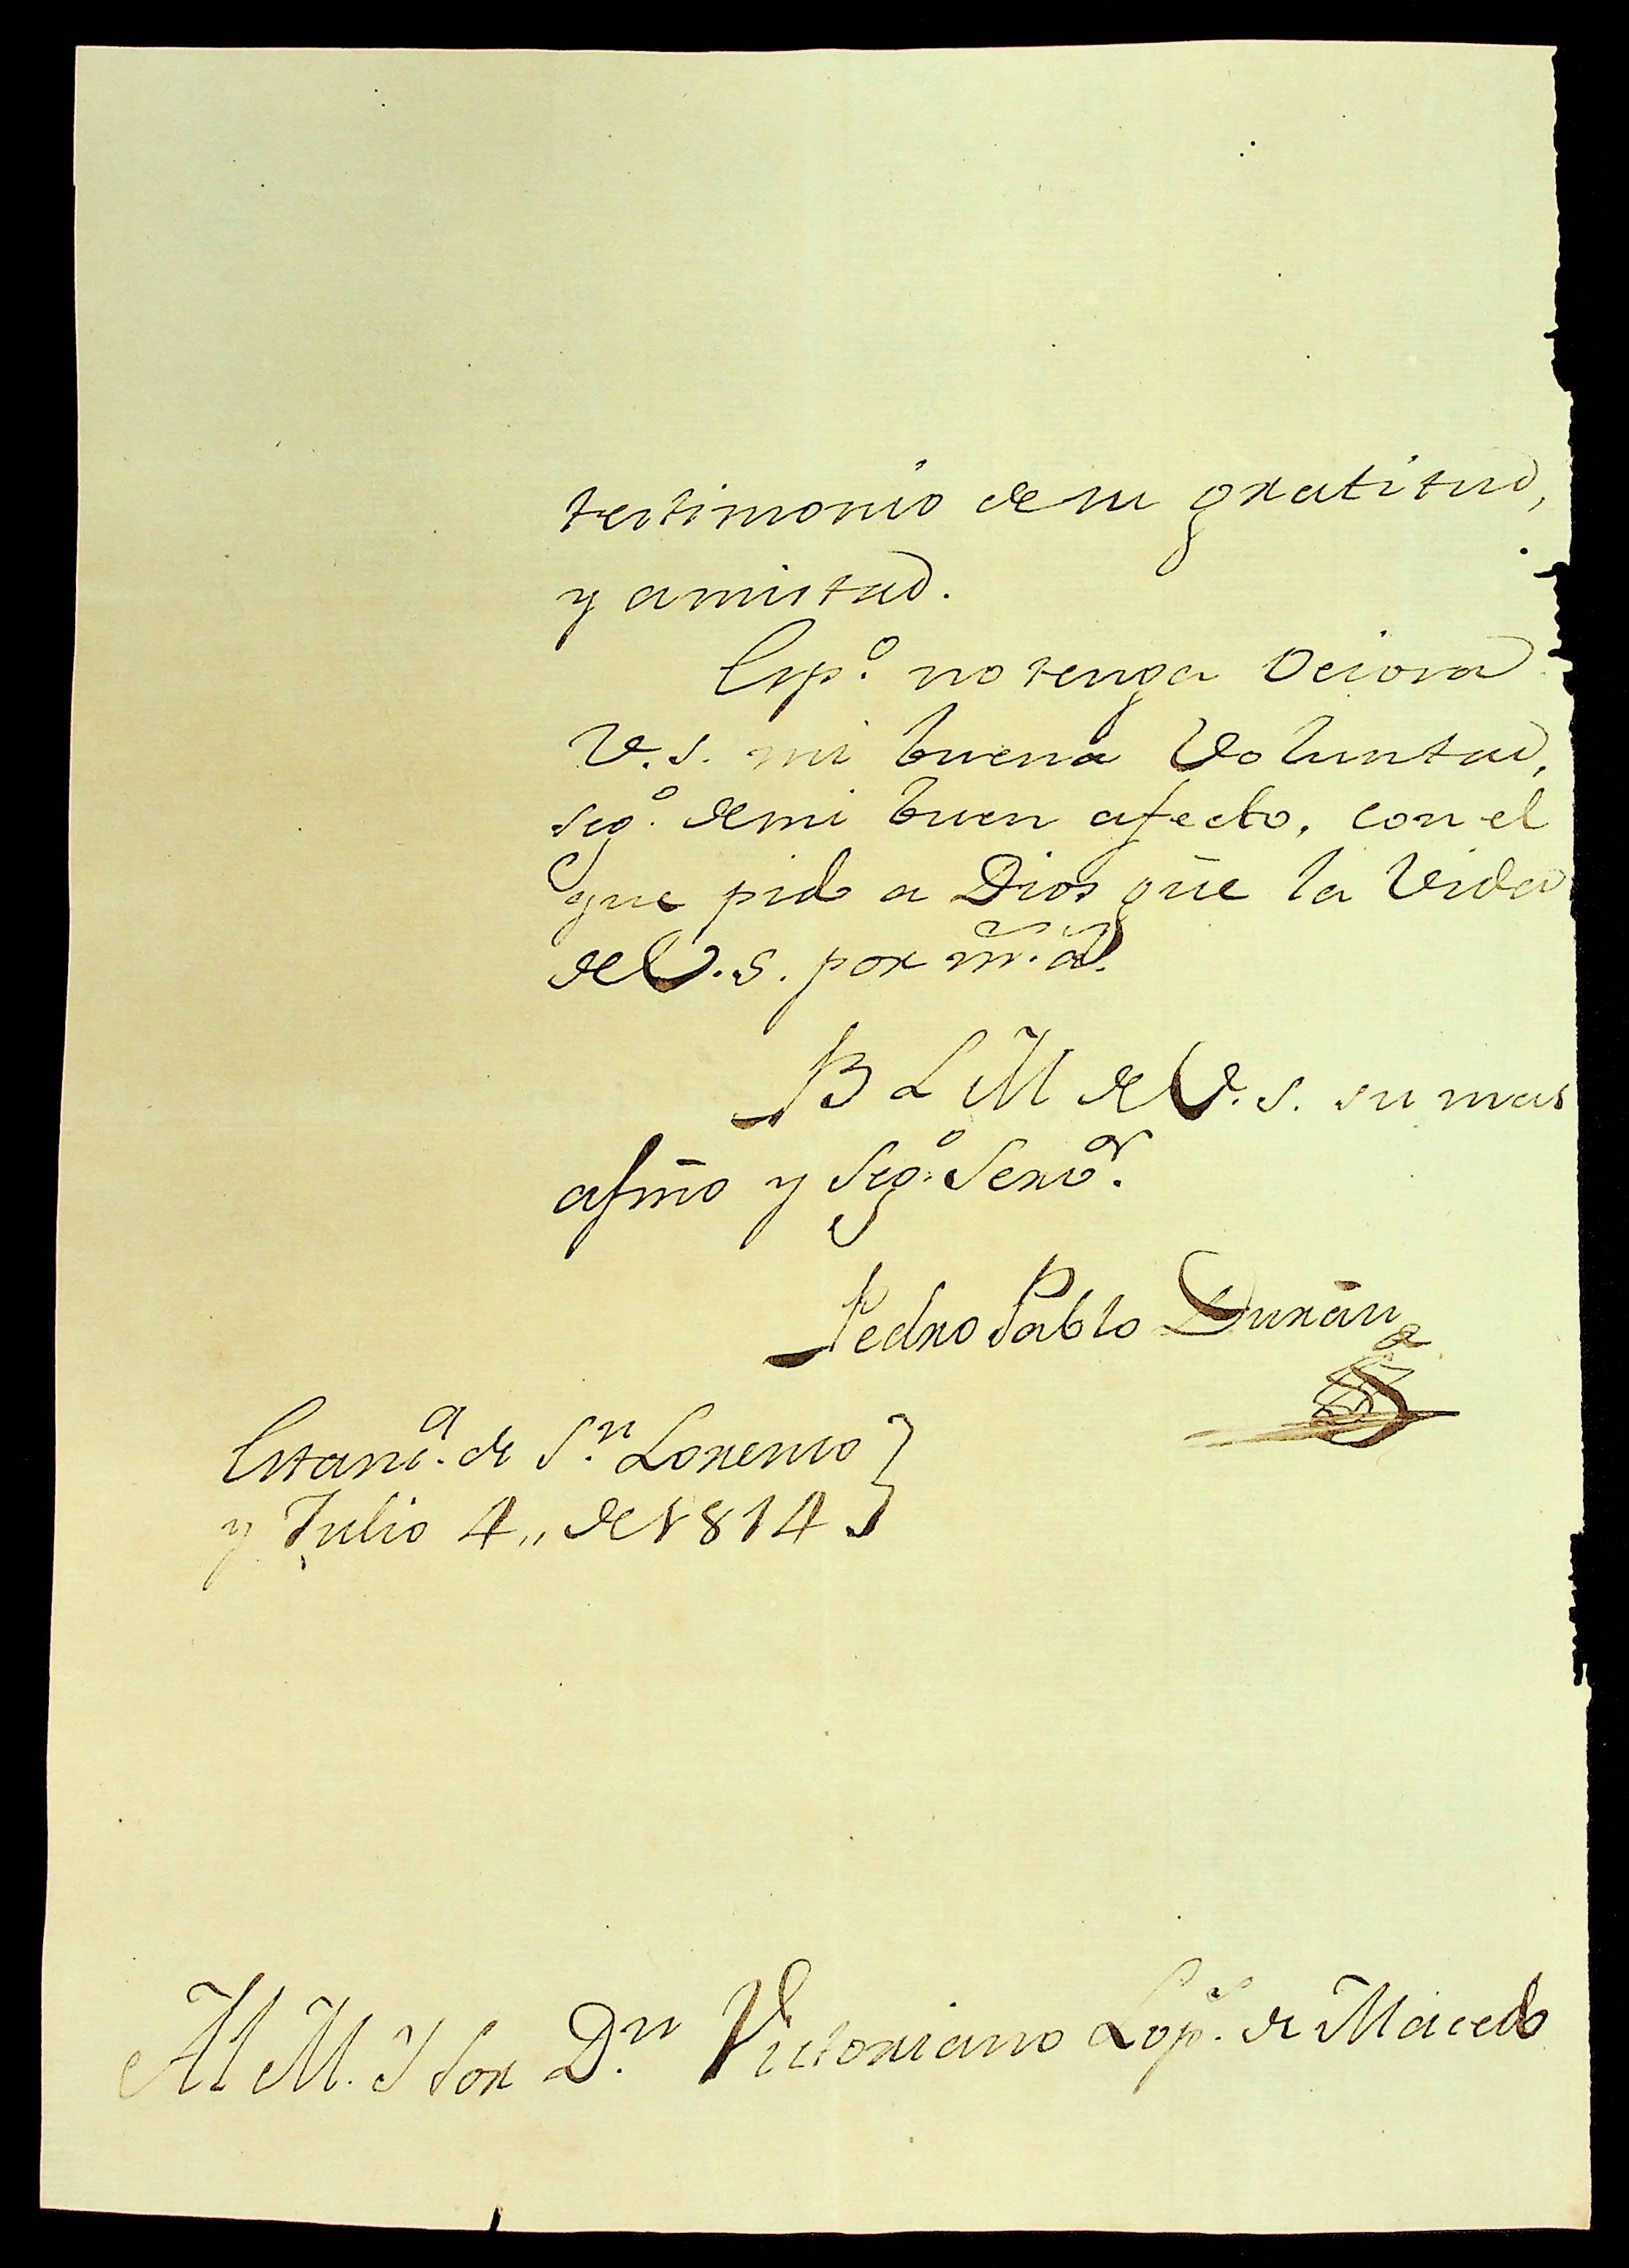 testimonio de su gratitud,
y amistad.
Esp.º no tenga ociosa
V.S. mi buena Voluntad,
seg.º demi buen afecto, con el
que pido a Dios gūe la Vida
de V.S. por m.s a.s
B L M de V.S. su mas
afmō y Seg.º Serv.or
Pedro Pablo Durán
Estanc.a de S.n Lorenzo
y Julio 4,, de 1814
Al M. Y Sor D.n Victoriano Lop.s de Macedo